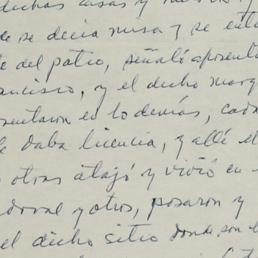 dichas casas y
se decia missa y se
del patio, señaló aposento
ancisco, y el dicho marq
sentaron en lo demás, cada
le daba licencia, y allí el
otros atajó y vivió en
doval y otros, posaron y
el dicho sitio donde son